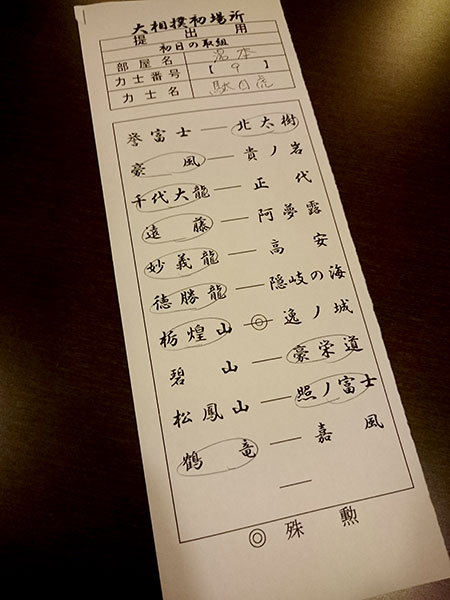 大相撲初場所
提出用
初日の取組
部屋名 湯本
力士番号 【9】
力士名 駄目虎
誉富士 ― 北太樹
豪風 ― 貴ノ岩
千代大龍 ― 正代
遠藤 ― 阿夢露
妙義龍 ― 高安
徳勝龍 ― 隠岐の海
栃煌山 ◎ 逸ノ城
碧山 ― 豪栄道
松鳳山 ― 照ノ富士
鶴竜 ― 嘉風
―
◎ 殊勲